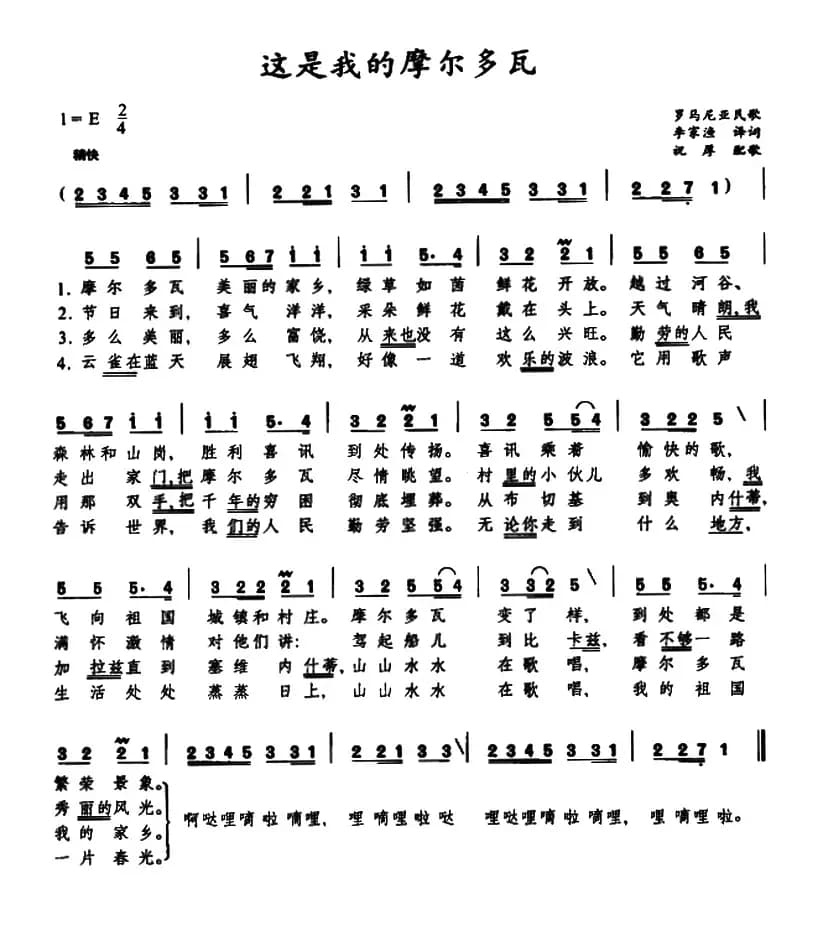 这是我的摩尔多瓦
1=E 2/4
罗马尼亚民歌
李家渔 译词
祝厚 配歌
稍快
(2345 331 | 221 31 | 2345 331 | 2271) |
55 65 | 567 i i | i i 5·4 | 32 21 | 55 65 |
1.摩尔多瓦 美丽的家乡,绿草如茵 鲜花开放。越过河谷、
2.节日来到,喜气洋洋,采朵鲜花 戴在头上。天气晴朗,我
3.多么美丽,多么富饶,从来也没有 这么兴旺。勤劳的人民
4.云雀在蓝天 展翅飞翔,好像一道 欢乐的波浪。它用歌声
567 i i | i i 5·4 | 32 21 | 55 554 | 322 5 \ |
森林和山岗,胜利喜讯 到处传扬。喜讯乘着 愉快的歌,
走出家门,把摩尔多瓦 尽情眺望。村里的小伙儿 多欢畅,我
用那双手,把千年的穷困 彻底埋葬。从布切基 到奥内什蒂,
告诉世界,我们的人民 勤劳坚强。无论你走到 什么地方,
55 5·4 | 322 21 | 32 554 | 332 5 \ | 55 5·4 |
飞向祖国 城镇和村庄。摩尔多瓦 变了样,到处都是
满怀激情 对他们讲:驾起船儿 到比卡兹,看不够一路
加拉兹直到 塞维内什蒂,山山水水 在歌唱,摩尔多瓦
生活处处 蒸蒸日上,山山水水 在歌唱,我的祖国
32 21 | 2345 331 | 221 33 \ | 2345 331 | 2271 ‖
繁荣景象。
秀丽的风光。
我的家乡。
一片春光。
啊哒哩嘀啦嘀哩,哩嘀哩啦哒 哩哒哩嘀啦嘀哩,哩嘀哩啦。